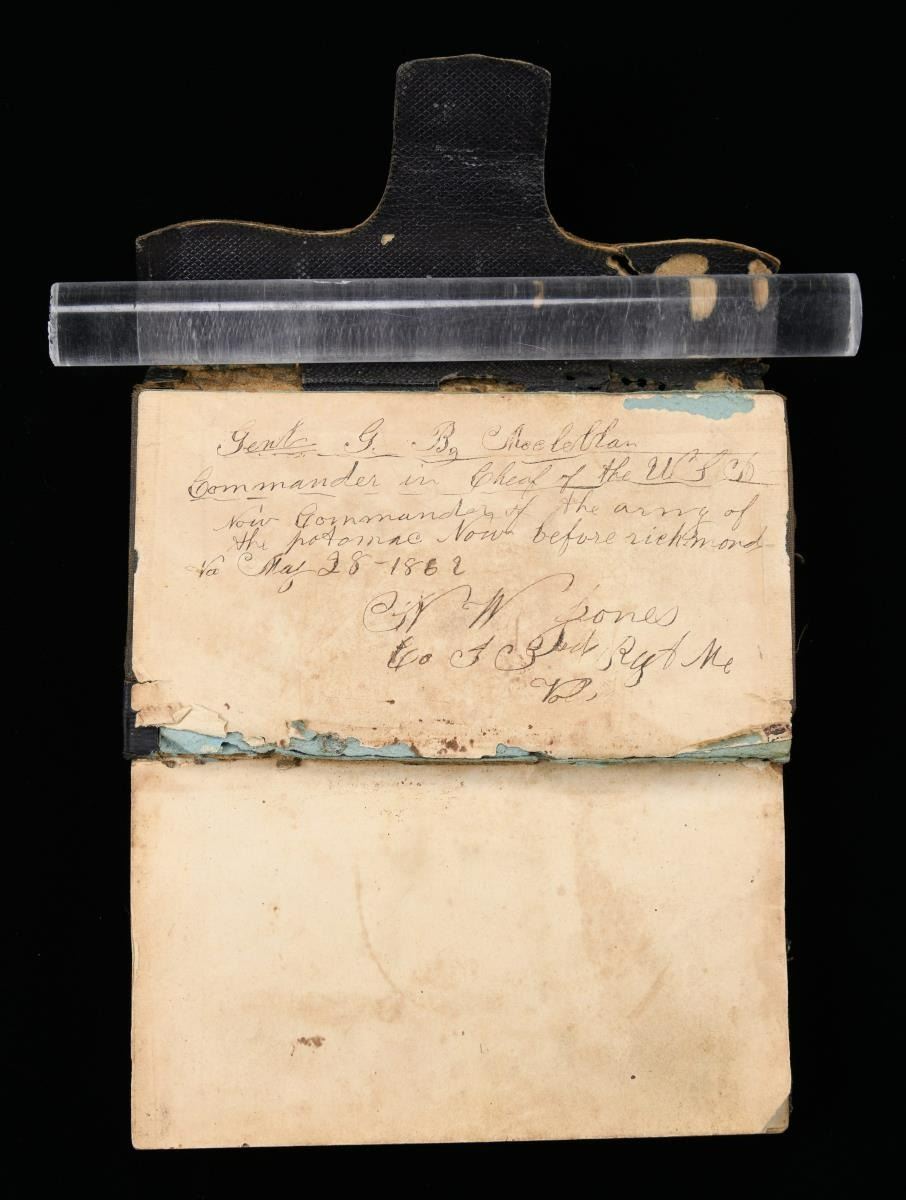 Genl G. B, Mcclellan
Commander in Cheaf of the U S
Now Commander of the army of
the potomac Now before richmond
Va May 28 1862
W Jones
Co I 3d Regt Me
Vol,